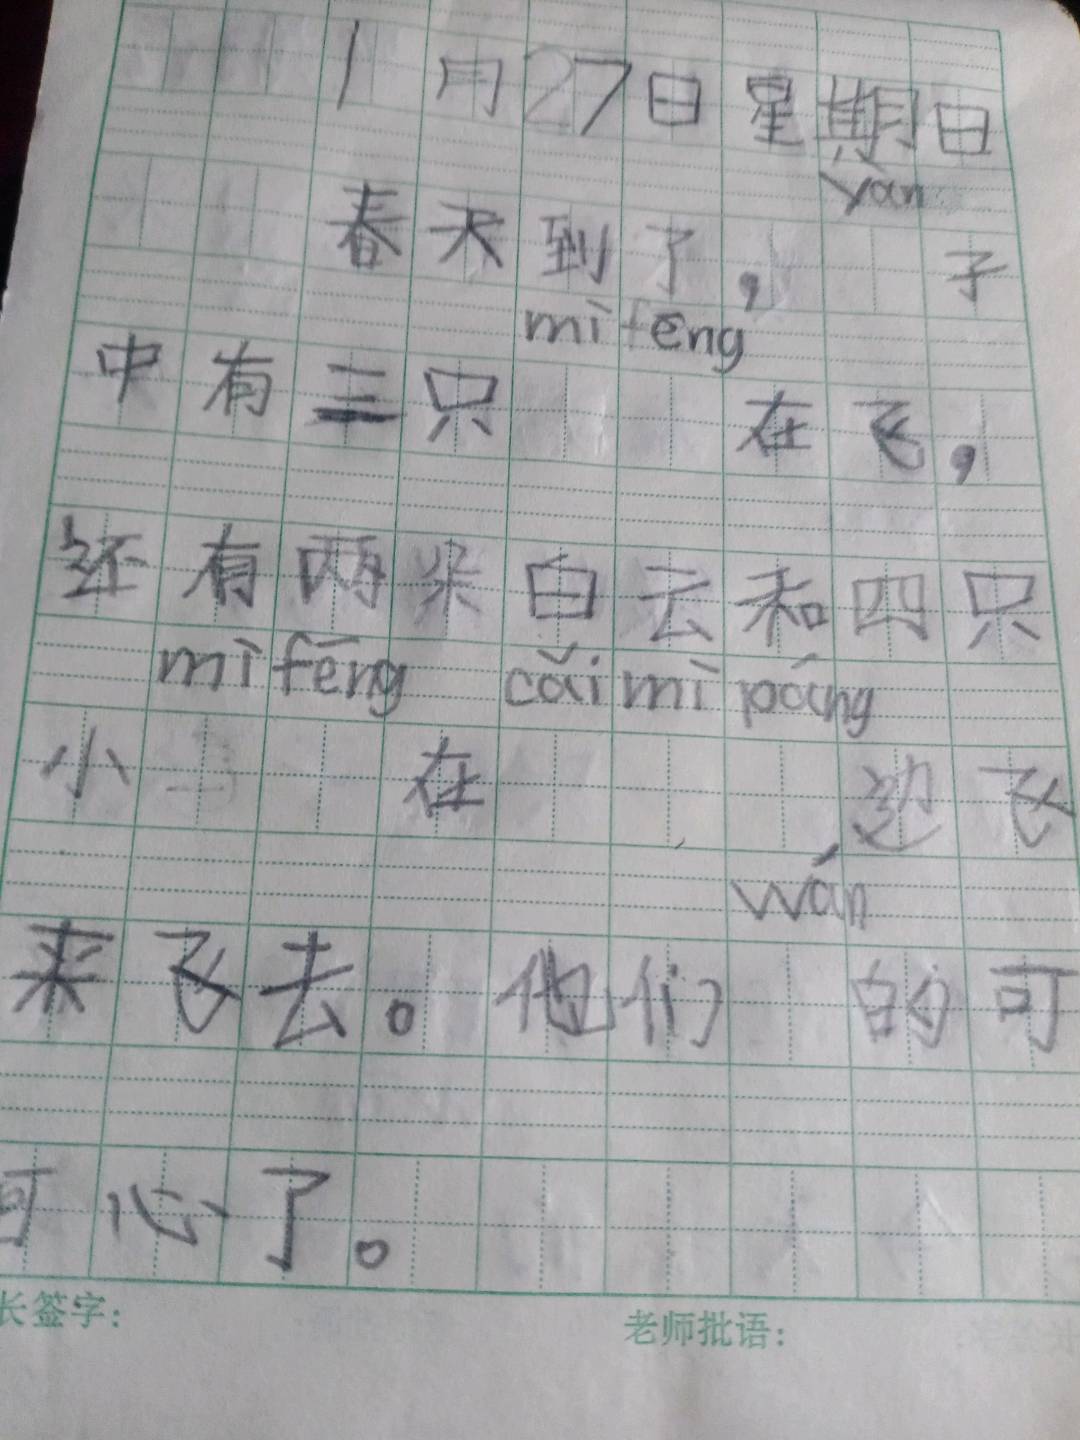 1月27日星期日
yàn
春天到了， 子
mì fēng
中有三只 在飞，
还有两朵白云和四只
mì fēng cǎi mì páng
小 在 边飞
wán
来飞去。他们 的可
可心了。
长签字： 老师批语：